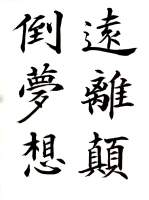 遠離顛
倒夢想